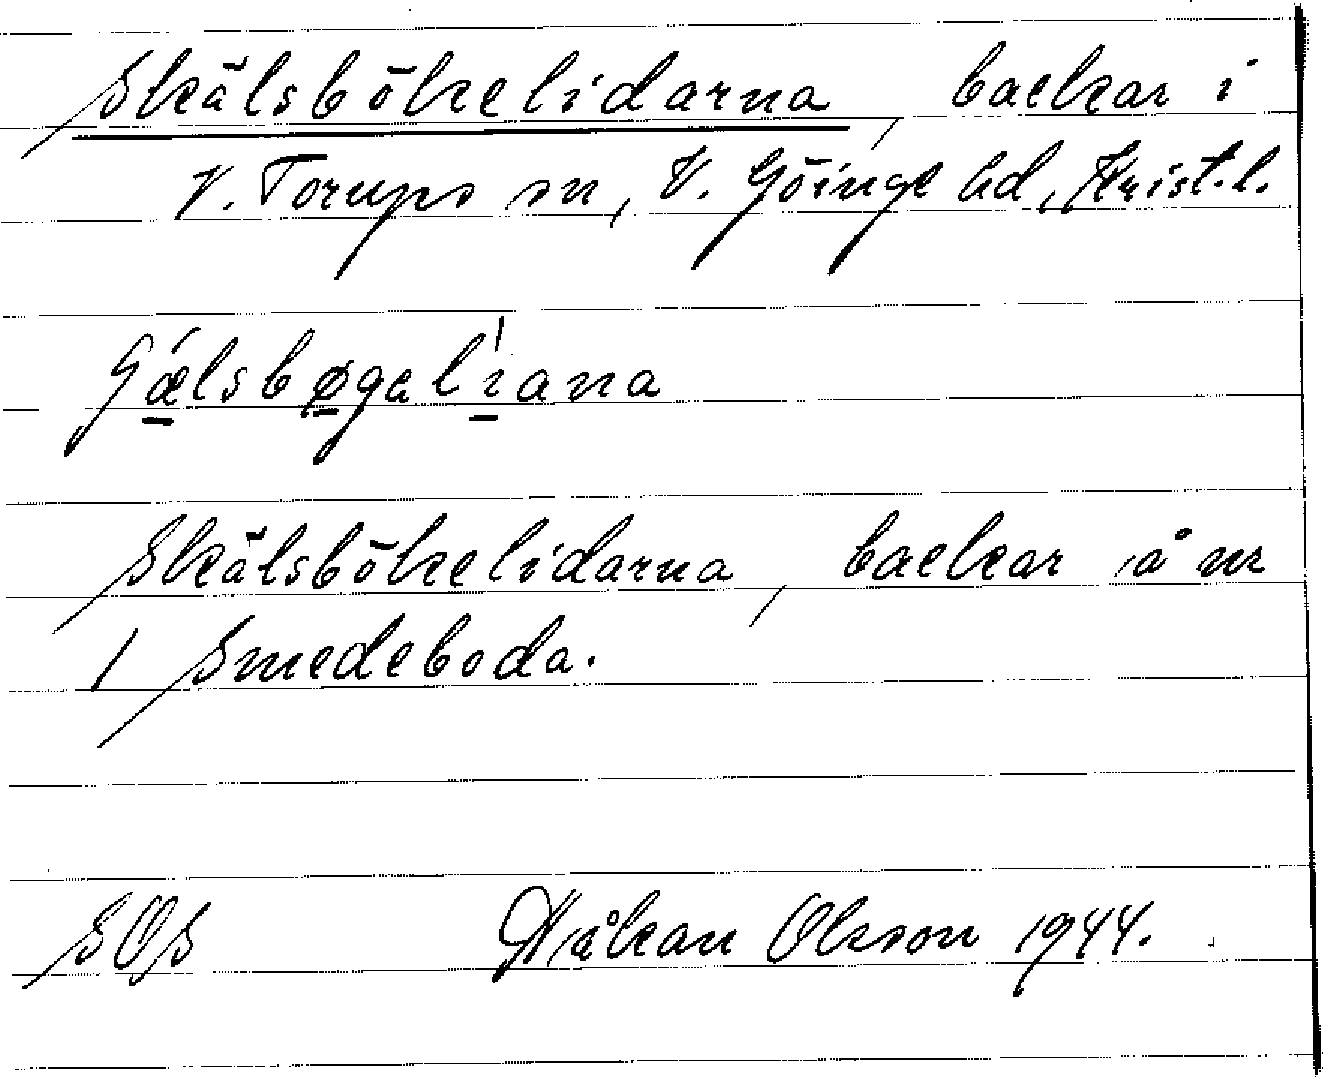 Skälsbökelidarna, backar i
V. Torups sn, V. Göinge hd, Krist.l.
Gǽlsbøgalı̍ana
Skälsbökelidarna, backar å nr
1 Smedeboda.
SOS Håkan Olsson 1944.